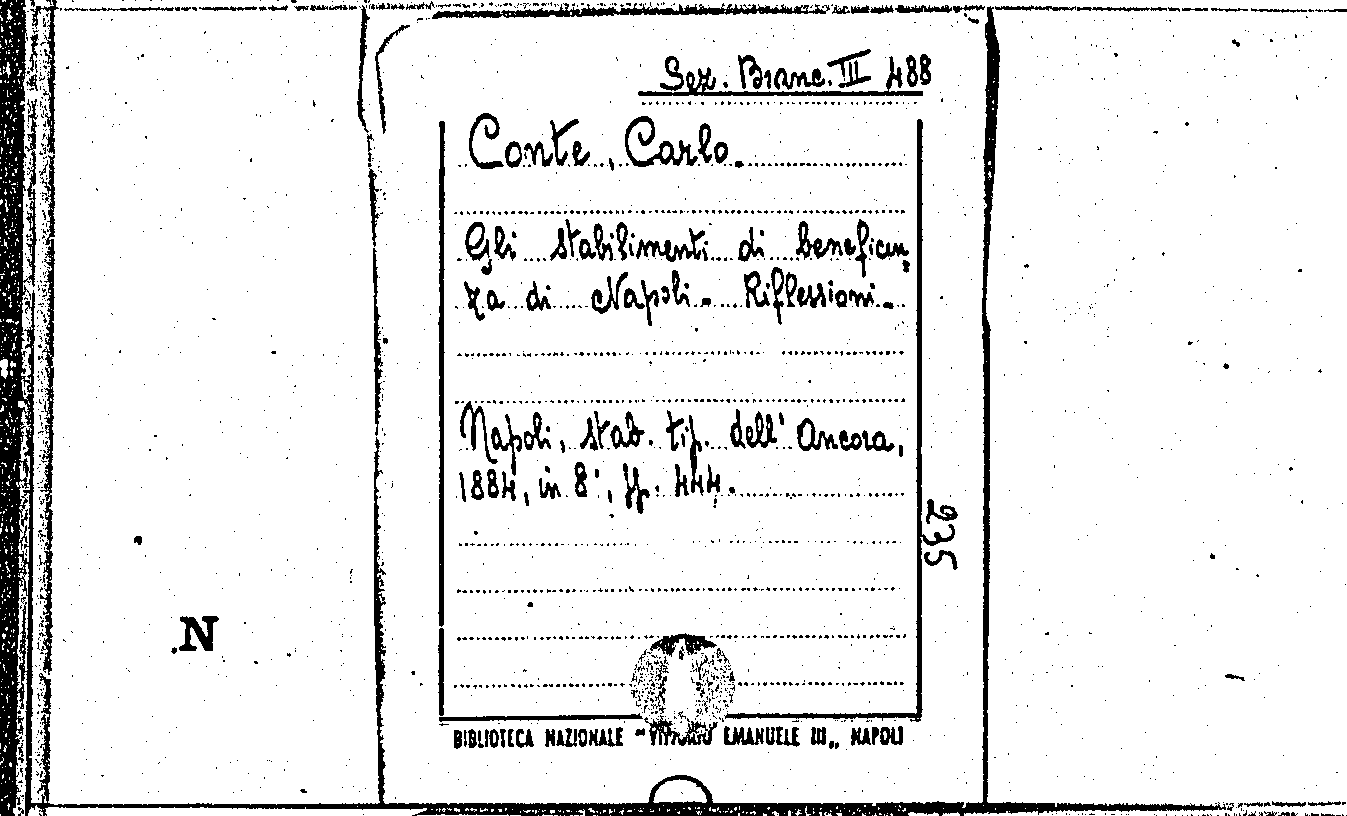 Sez. Branc. III 488
Conte, Carlo.
Gli stabilimenti di beneficen=
za di Napoli - Riflessioni -
Napoli, stab. tip. dell' Ancora,
1884, in 8°, pp. 444.
235
N
BIBLIOTECA NAZIONALE "VITTORIO EMANUELE III„ NAPOLI